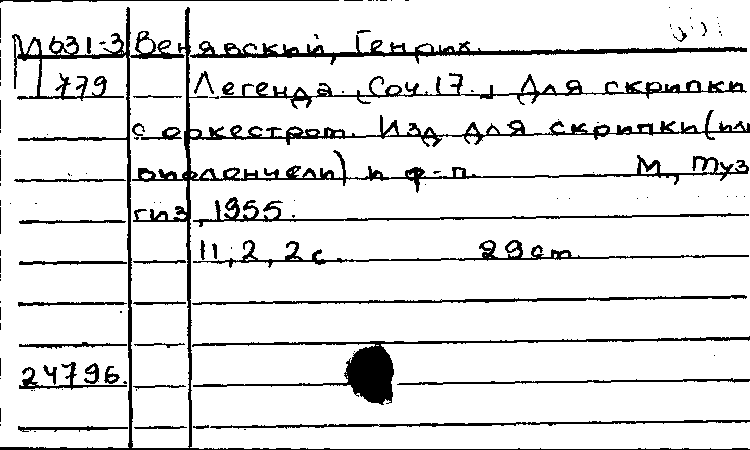 М631-3 Венявский, Генрих.
779 Легенда. [Соч. 17.] Для скрипки
с оркестром. Изд. для скрипки (или
виолончели) и ф-п. М., Муз
гиз, 1955.
11, 2, 2 с. 29 cm.
24796.